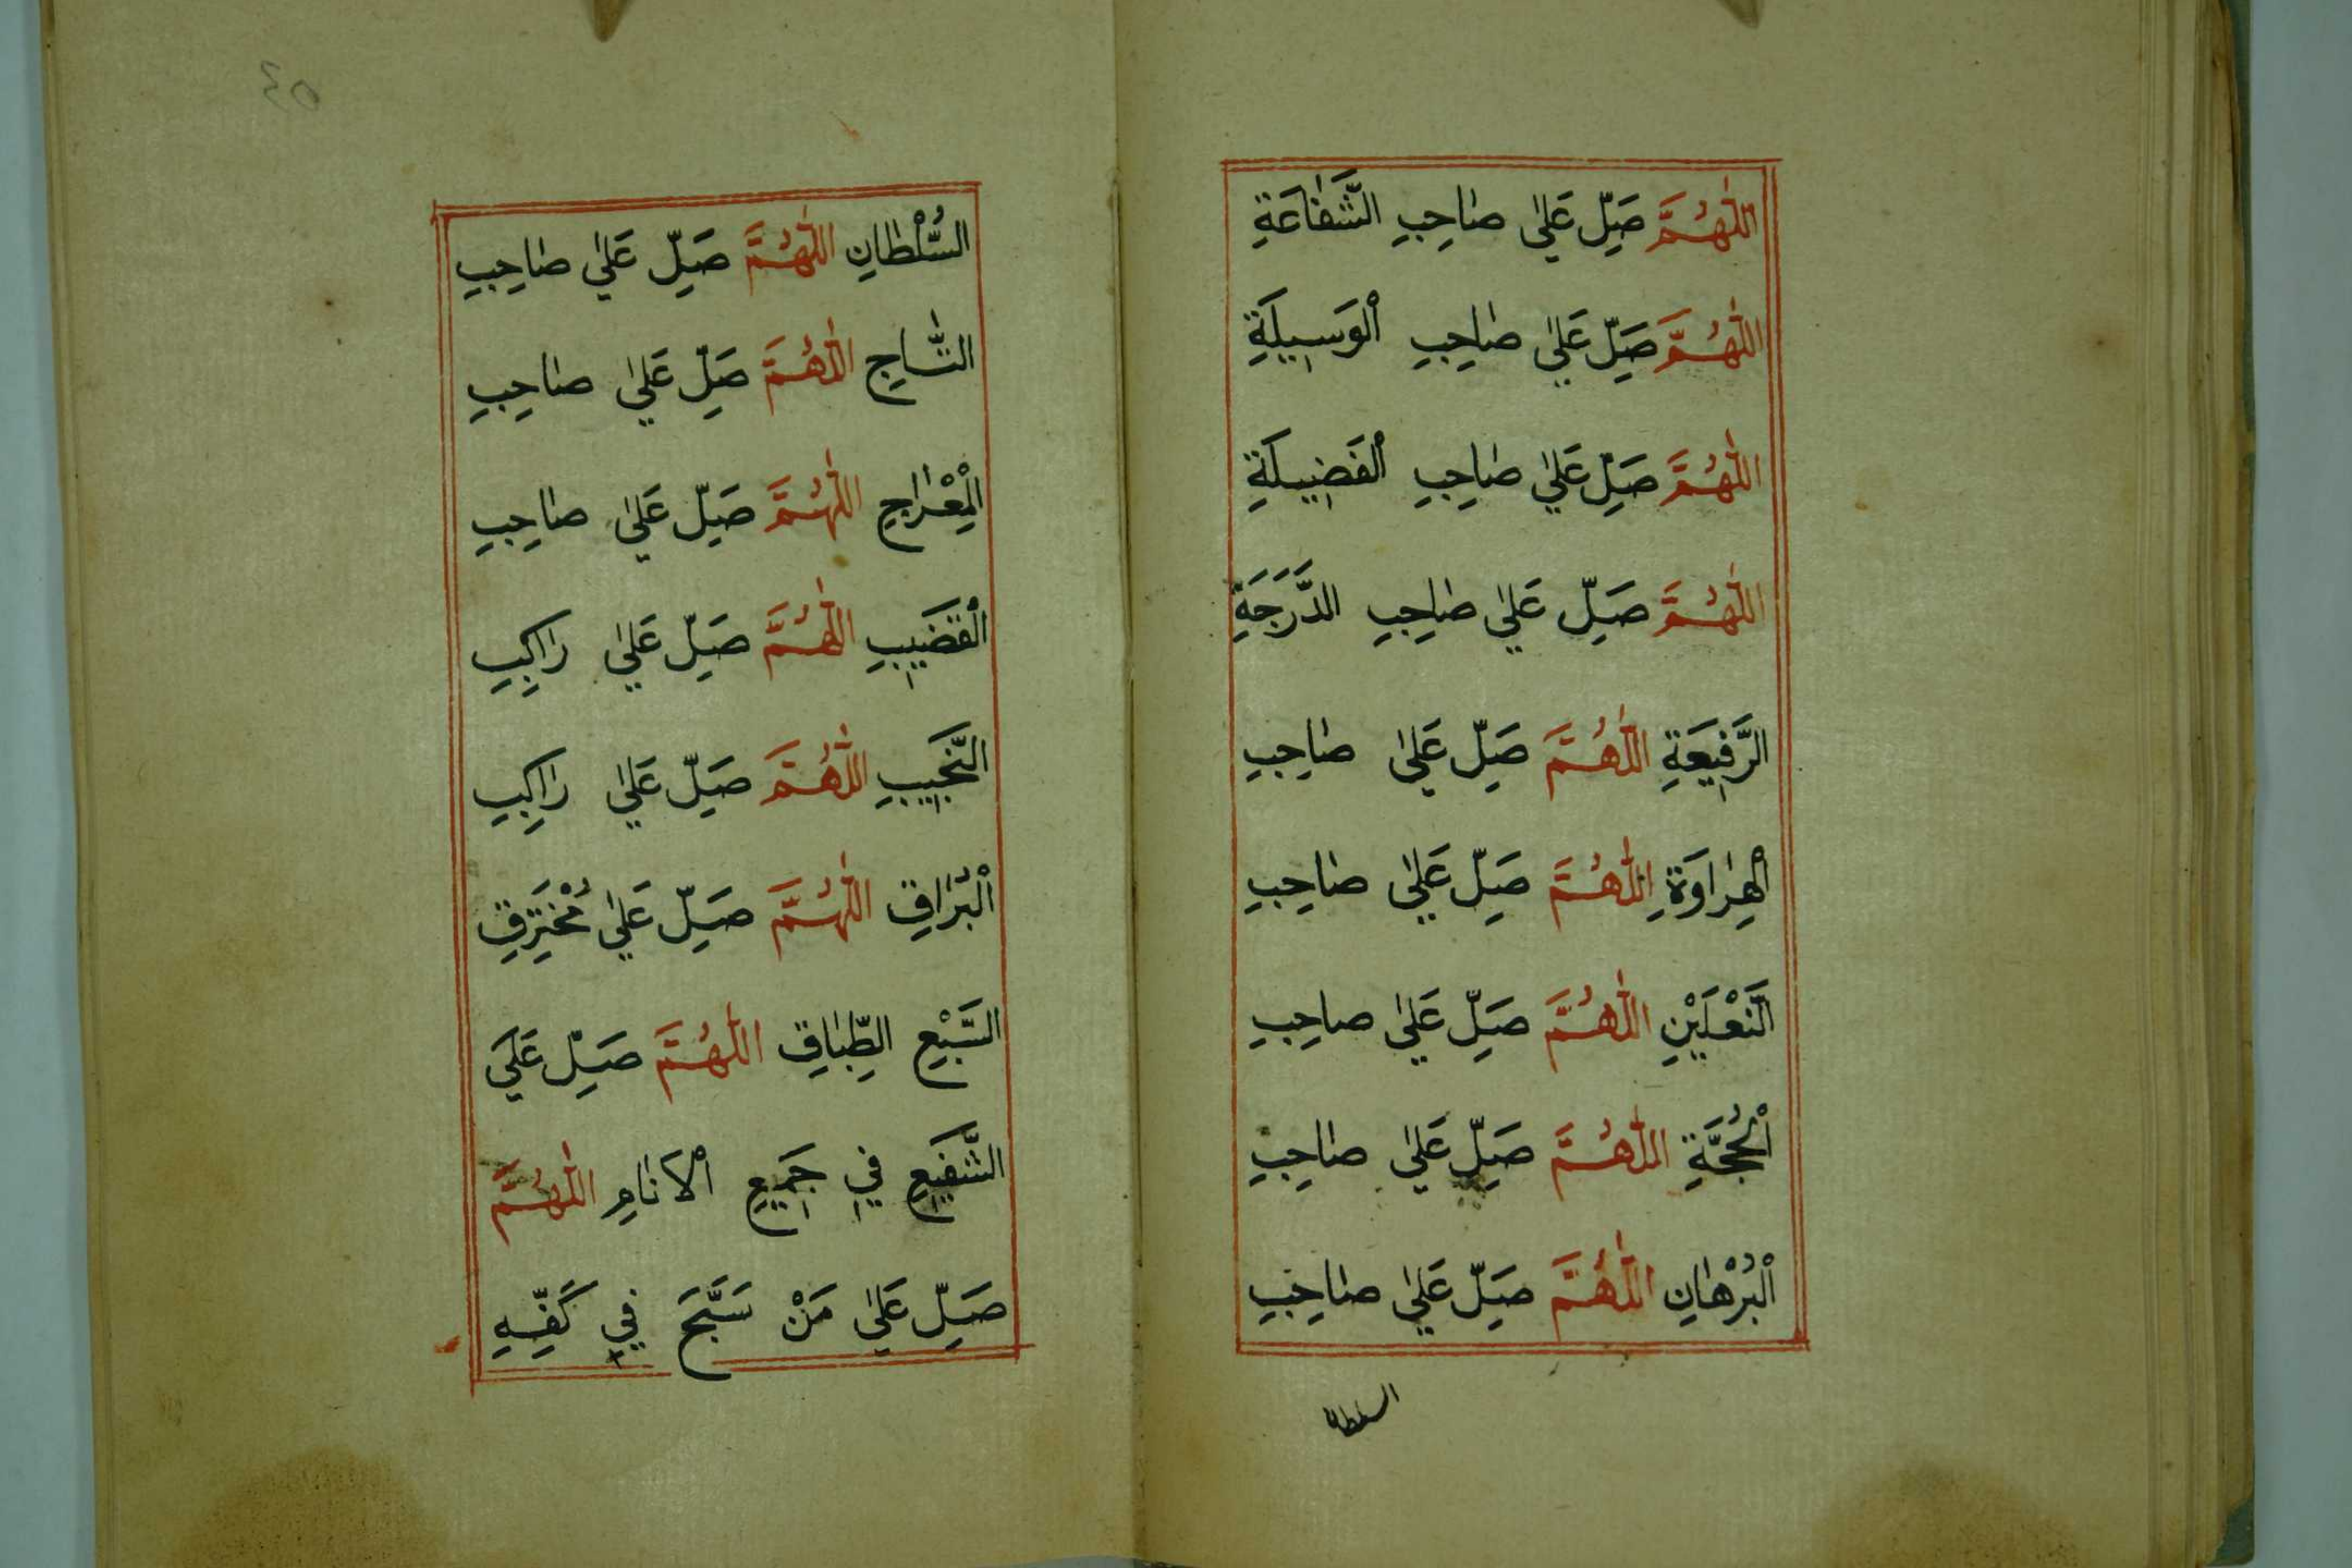 اللّٰهُمَّ صَلِّ عَلٰي صٰاحِبِ الشَّفٰاعَةِ
اللّٰهُمَّ صَلِّ عَلٰي صٰاحِبِ الْوَسِيلَةِ
اللّٰهُمَّ صَلِّ عَلٰي صٰاحِبِ الْفَضِيلَةِ
اللّٰهُمَّ صَلِّ عَلٰي صٰاحِبِ الدَّرَجَةِ
الرَّفِيعَةِ اللّٰهُمَّ صَلِّ عَلٰي صٰاحِبِ
الْهِرٰاوَةِ اللّٰهُمَّ صَلِّ عَلٰي صٰاحِبِ
النَّعْلَيْنِ اللّٰهُمَّ صَلِّ عَلٰي صٰاحِبِ
الْحُجَّةِ اللّٰهُمَّ صَلِّ عَلٰي صٰاحِبِ
الْبُرْهٰانِ اللّٰهُمَّ صَلِّ عَلٰي صٰاحِبِ
السلطان
٤٥
السُّلْطٰانِ اللّٰهُمَّ صَلِّ عَلٰي صٰاحِبِ
التّٰاجِ اللّٰهُمَّ صَلِّ عَلٰي صٰاحِبِ
الْمِعْرٰاجِ اللّٰهُمَّ صَلِّ عَلٰي صٰاحِبِ
الْقَضِيبِ اللّٰهُمَّ صَلِّ عَلٰي رٰاكِبِ
النَّجِيبِ اللّٰهُمَّ صَلِّ عَلٰي رٰاكِبِ
الْبُرٰاقِ اللّٰهُمَّ صَلِّ عَلٰي مُخْتَرِقِ
السَّبْعِ الطِّبٰاقِ اللّٰهُمَّ صَلِّ عَلَي
الشَّفِيعِ فِي جَمِيعِ الْاَنٰامِ اللّٰهُمَّ
صَلِّ عَلٰي مَنْ سَبَّحَ فِي كَفِّهِ